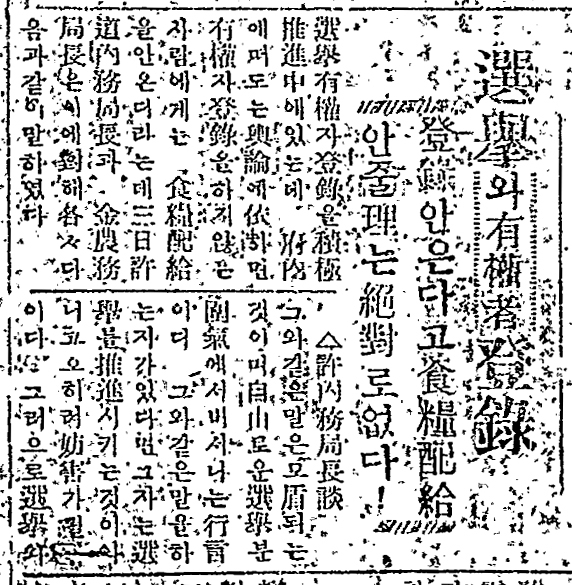 選擧와有權者登錄
登錄안은다고食糧配給
안줄理는絕對로없다!
選擧有權자登錄을積極
推進中에있는데 府內
에떠도는輿論에依하면
有權자登錄을하지않은
사람에게는 食糧配給
을안온다라는데三日許
道內務局長과 金農務
局長은이에對해各々다
음과같이말하였다
△許內務局長談
그와같은말은모盾되는
것이며自由로운選擧분
圍氣에서버서나는行言
이다 그와같은말을하
는자가있다면그자는選
擧를推進시키는것이아
니고오히려妨害가
이다 그러으로選擧와